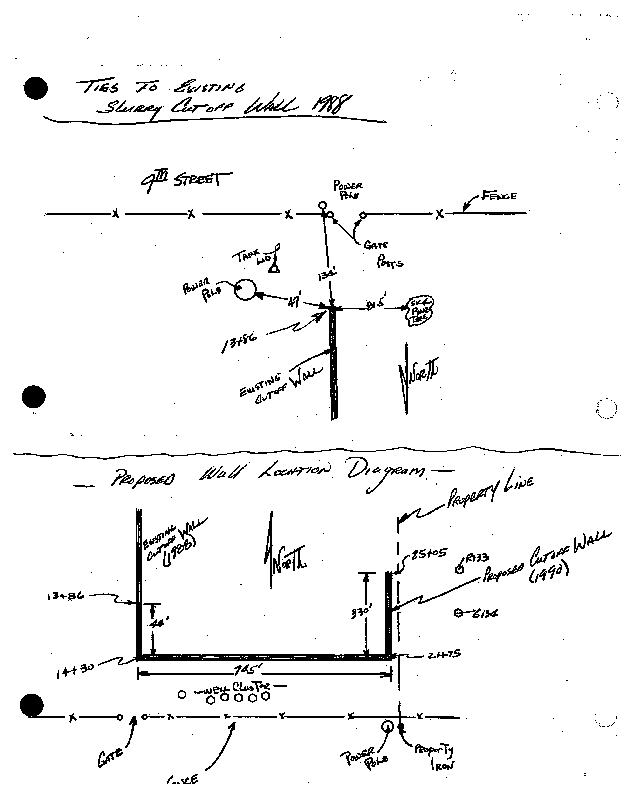 TIES TO EXISTING
SLURRY CUTOFF WALL 1988
9TH STREET
POWER
POLE
FENCE
GATE
POSTS
TANK
LID
POWER
POLE
136'
49'
81.5'
13+86
EXISTING
CUTOFF WALL
NORTH
— PROPOSED WALL LOCATION DIAGRAM —
PROPERTY LINE
EXISTING
CUTOFF WALL
(1988)
NORTH
25+05
R133
PROPOSED CUTOFF WALL
(1990)
13+86
44'
330'
14+30
745'
21+75
— WELL CLUSTER —
GATE
POWER
POLE
PROPERTY
IRON